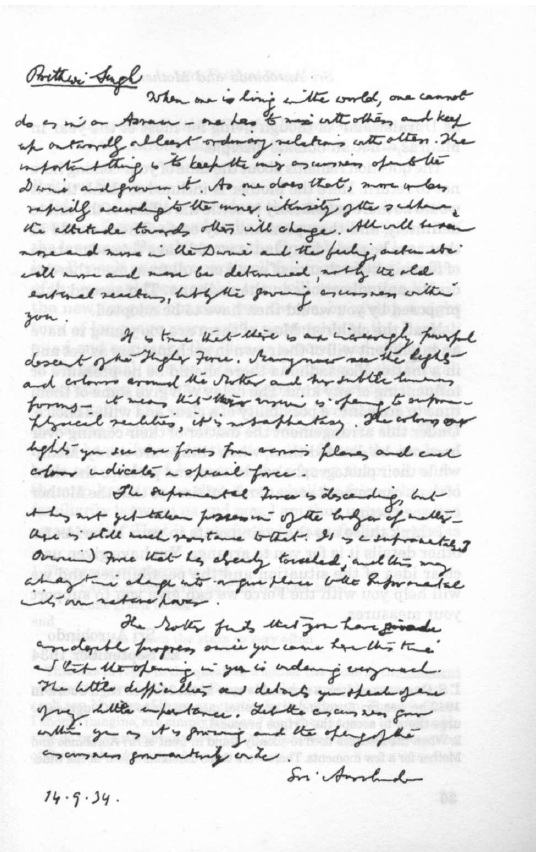 Prithwi Singh
When one is living in the world, one cannot
do as in an Asram — one has to mix with others and keep
up outwardly at least ordinary relations with others. The
important thing is to keep the inner consciousness open to the
Divine and grow in it. As one does that, more or less
rapidly according to the inner intensity of the sadhana,
the attitude towards others will change. All will be seen
more and more in the Divine and the feeling, action etc
will more and more be determined not by the old
external reactions, but by the growing consciousness within
you.
It is true that there is an increasingly powerful
descent of the Higher Force. Many now see the lights
and colours around the Mother and her subtle luminous
forms — it means that their vision is opening to supra-
physical realities, it is not a phantasy. The colours or
lights you see are forces from various planes and each
colour indicates a special force.
The supramental Force is descending, but
it has not yet taken possession of the body or of matter —
there is still much resistance to that. It is a supramentalised
Overmind Force that has already touched, and this may
at any time change into or give place to the Supramental
in its own native power.
The Mother finds that you have made
considerable progress since you came here this time
and that the opening in you is widening very much.
The little difficulties and details you speak of are
of very little importance. Let the consciousness grow
within you as it is growing and the opening of the
consciousness grow entirely wide.
Sri Aurobindo
14.9.34.